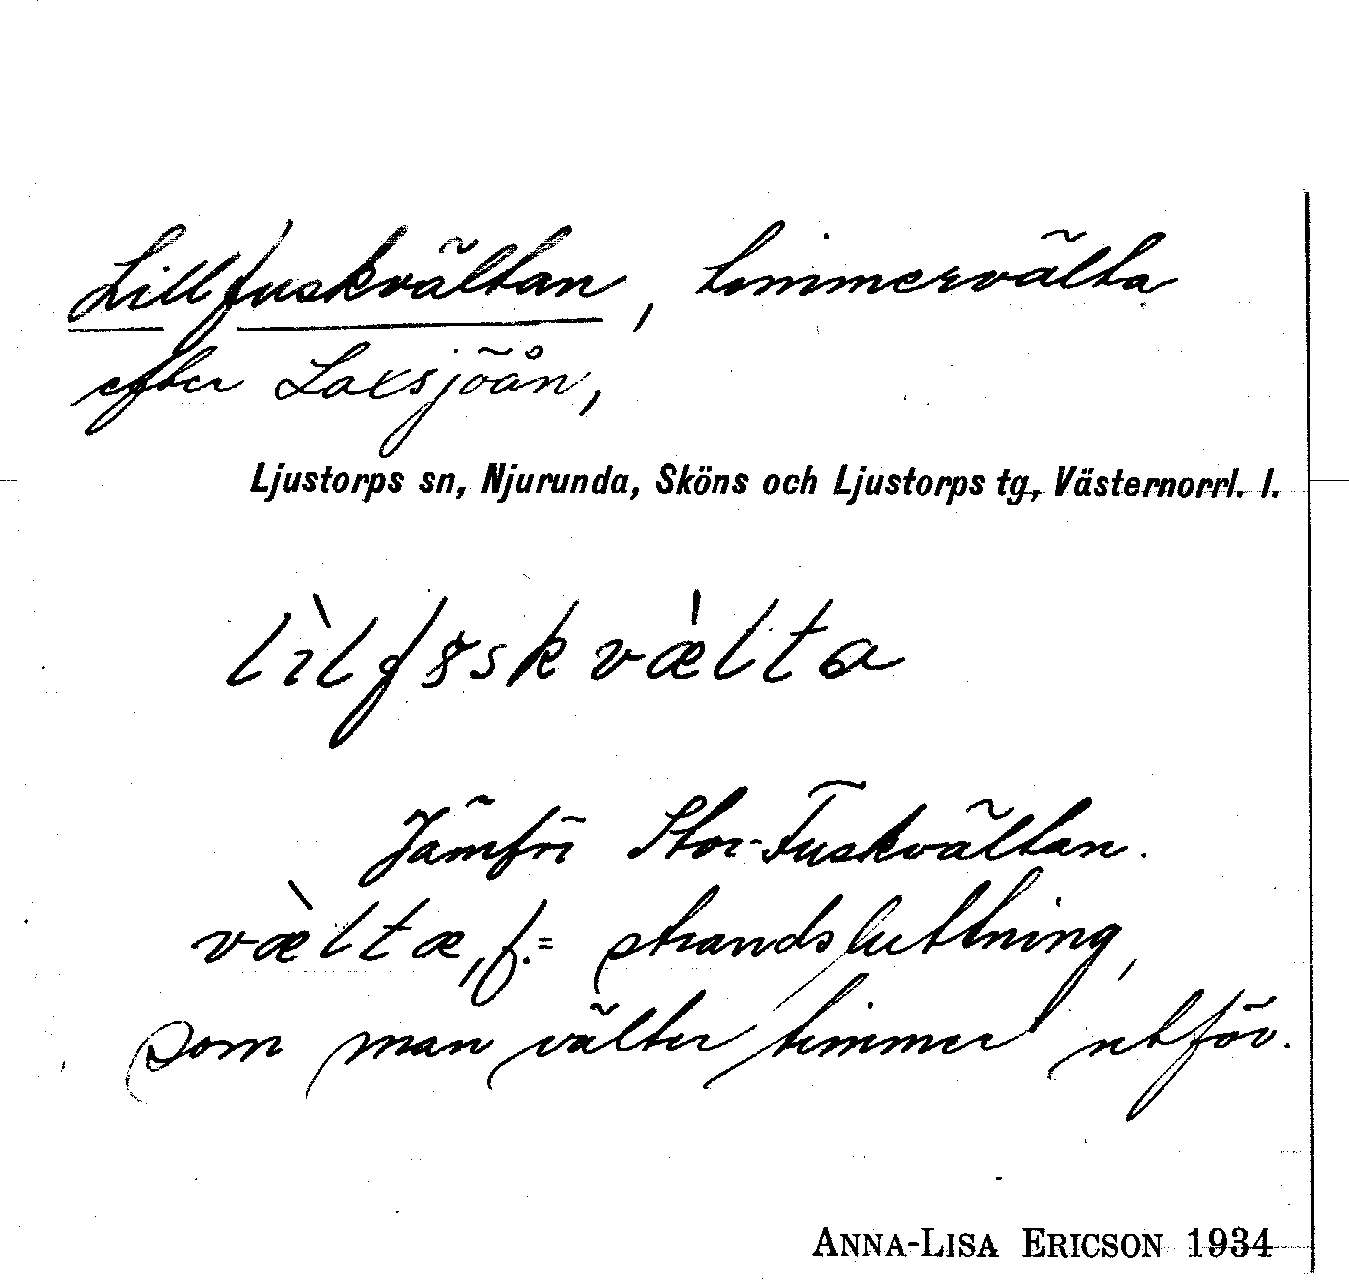 Lillfuskvältan, timmervälta
efter Laxsjöån,
Ljustorps sn, Njurunda, Sköns och Ljustorps tg, Västernorrl. l.
Jämför Stor-Fuskvältan.
væ̀ltæ, f. = strandsluttning,
som man välter timmer utför.
ANNA-LISA ERICSON 1934